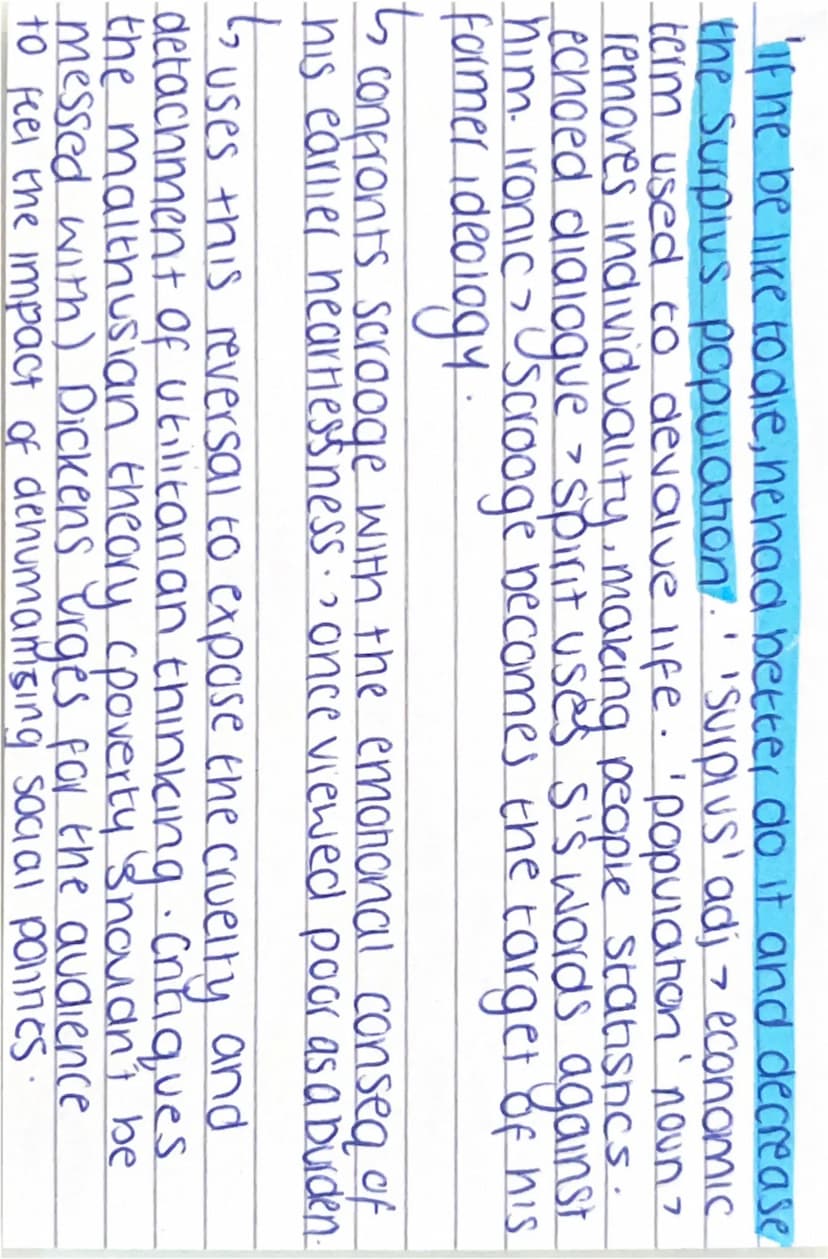 'if he be like to die, he had better do it and decrease
the surplus population.' 'surplus' adj > economic
term used to devalue life. 'population' noun >
removes individuality, making people statistics.
echoed dialogue > spirit uses S's words against
him. ironic > Scrooge becomes the target of his
former ideology.
↳ confronts scrooge with the emotional conseq of
his earlier heartlessness. > once viewed poor as a burden.
↳ uses this reversal to expose the cruelty and
detachment of utilitarian thinking. Critiques
the malthusian theory (poverty shouldn't be
messed with) Dickens urges for the audience
to feel the impact of dehumanising social policies.